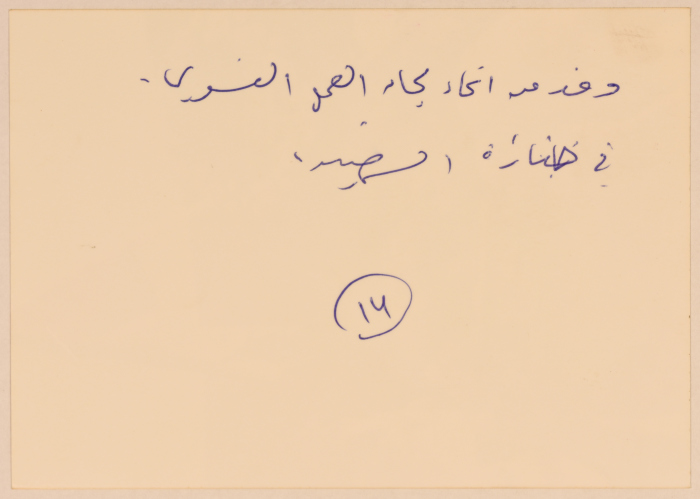 وفد من اتحاد لجان العمل النسوي.
في جنازة الشهيد،
١٦